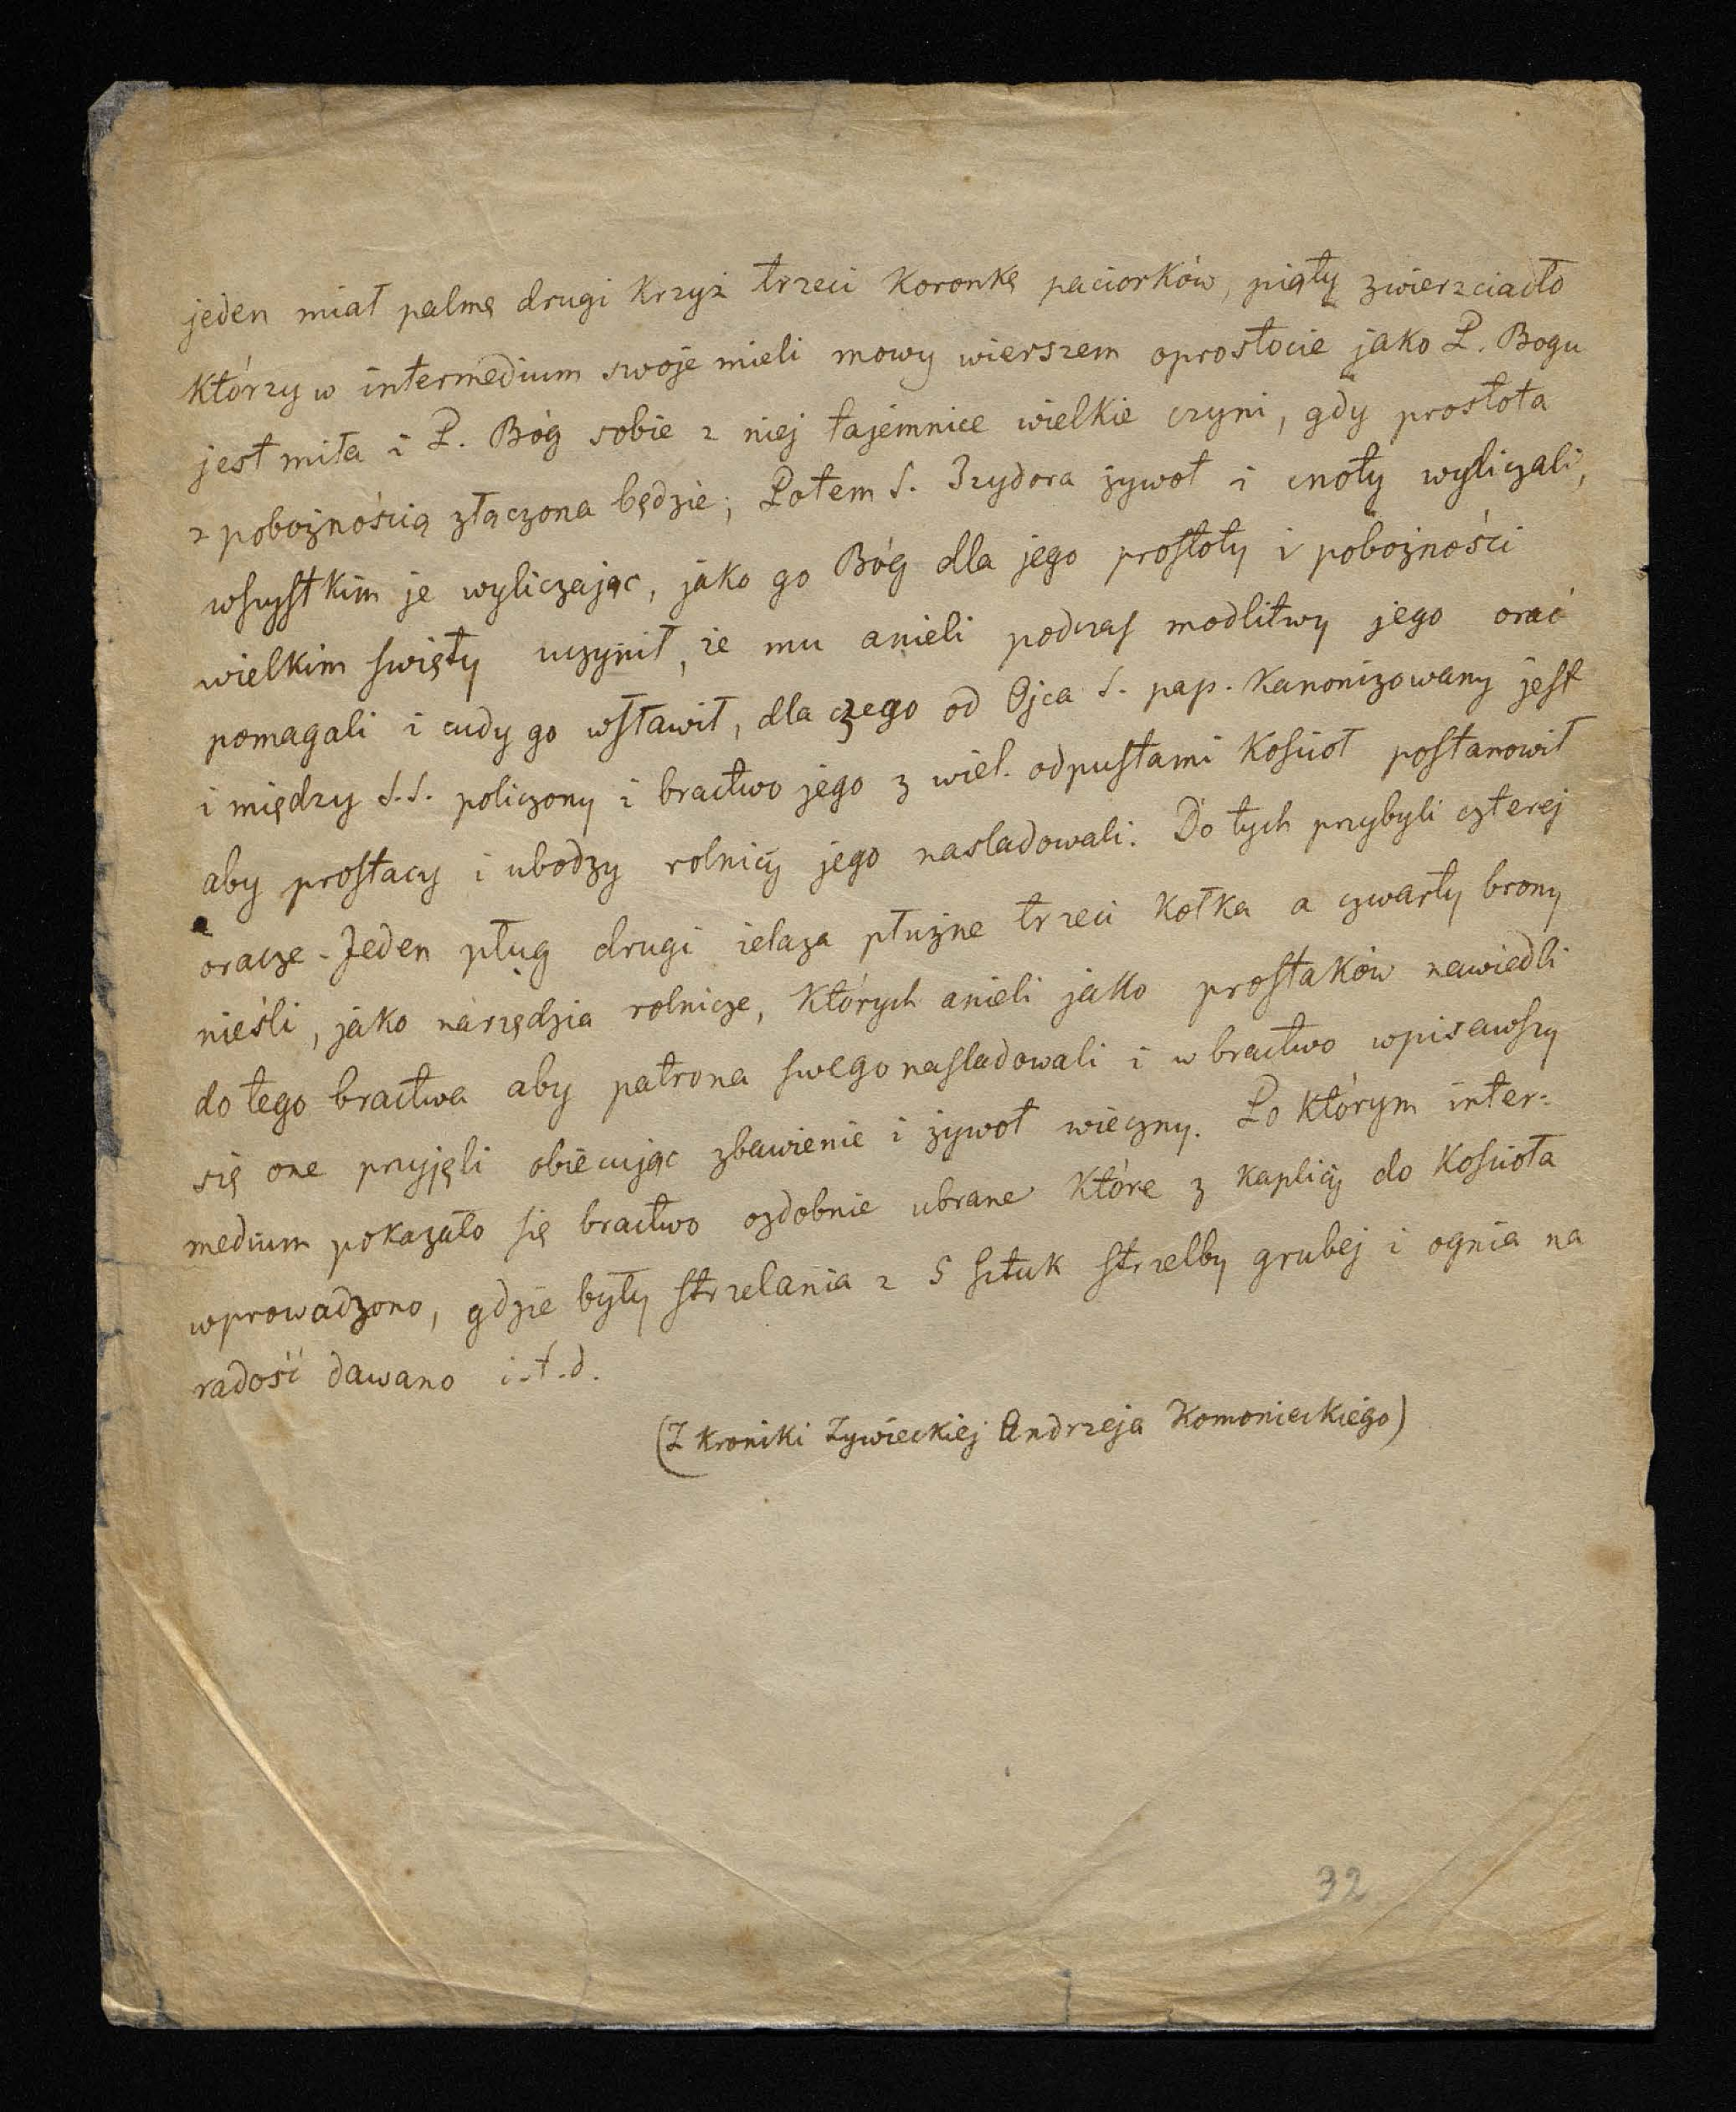 jeden miał palmę drugi Krzyż trzeci Koronkę paciorków, piąty zwierzciadło
Którzy w intermedium swoje mieli mowy wierszem oprostocie jako P. Bogu
jest miła i P. Bóg sobie z niej tajemnice wielkie czyni, gdy prostota
z pobożnością złączona będzie; Potem S. Izydora żywot i cnoty wyliczali,
wszystkim je wyliczając, jako go Bóg dla jego prostoty i pobożności
wielkim święty uczynił, że mu anieli podczas modlitwy jego orać
pomagali i cudy go wsławił, dla czego od Ojca S. pap. Kanonizowany jest
i między S.S. policzony i bractwo jego z wiel. odpustami Kościoł postanowił
aby prostacy i ubodzy rolnicy jego nasladowali. Do tych przybyli czterej
oracze - Jeden pług drugi żelaza płużne trzeci Kołka a czwarty brony
nieśli, jako narzędzia rolnicze, Których anieli jako prostaków nawiedli
do tego bractwa aby patrona swego nasladowali i w bractwo wpisawszy
się one przyjęli obiecując zbawienie i żywot wieczny. Po Którym inter-
medium pokazało się bractwo ozdobnie ubrane Które z Kaplicy do Kościoła
wprowadzono, gdzie były strzelania z 5 sztuk strzelby grubej i ognia na
radość dawano i.t.d.
(Z Kroniki Żywieckiej Andrzeja Komonieckiego)
32